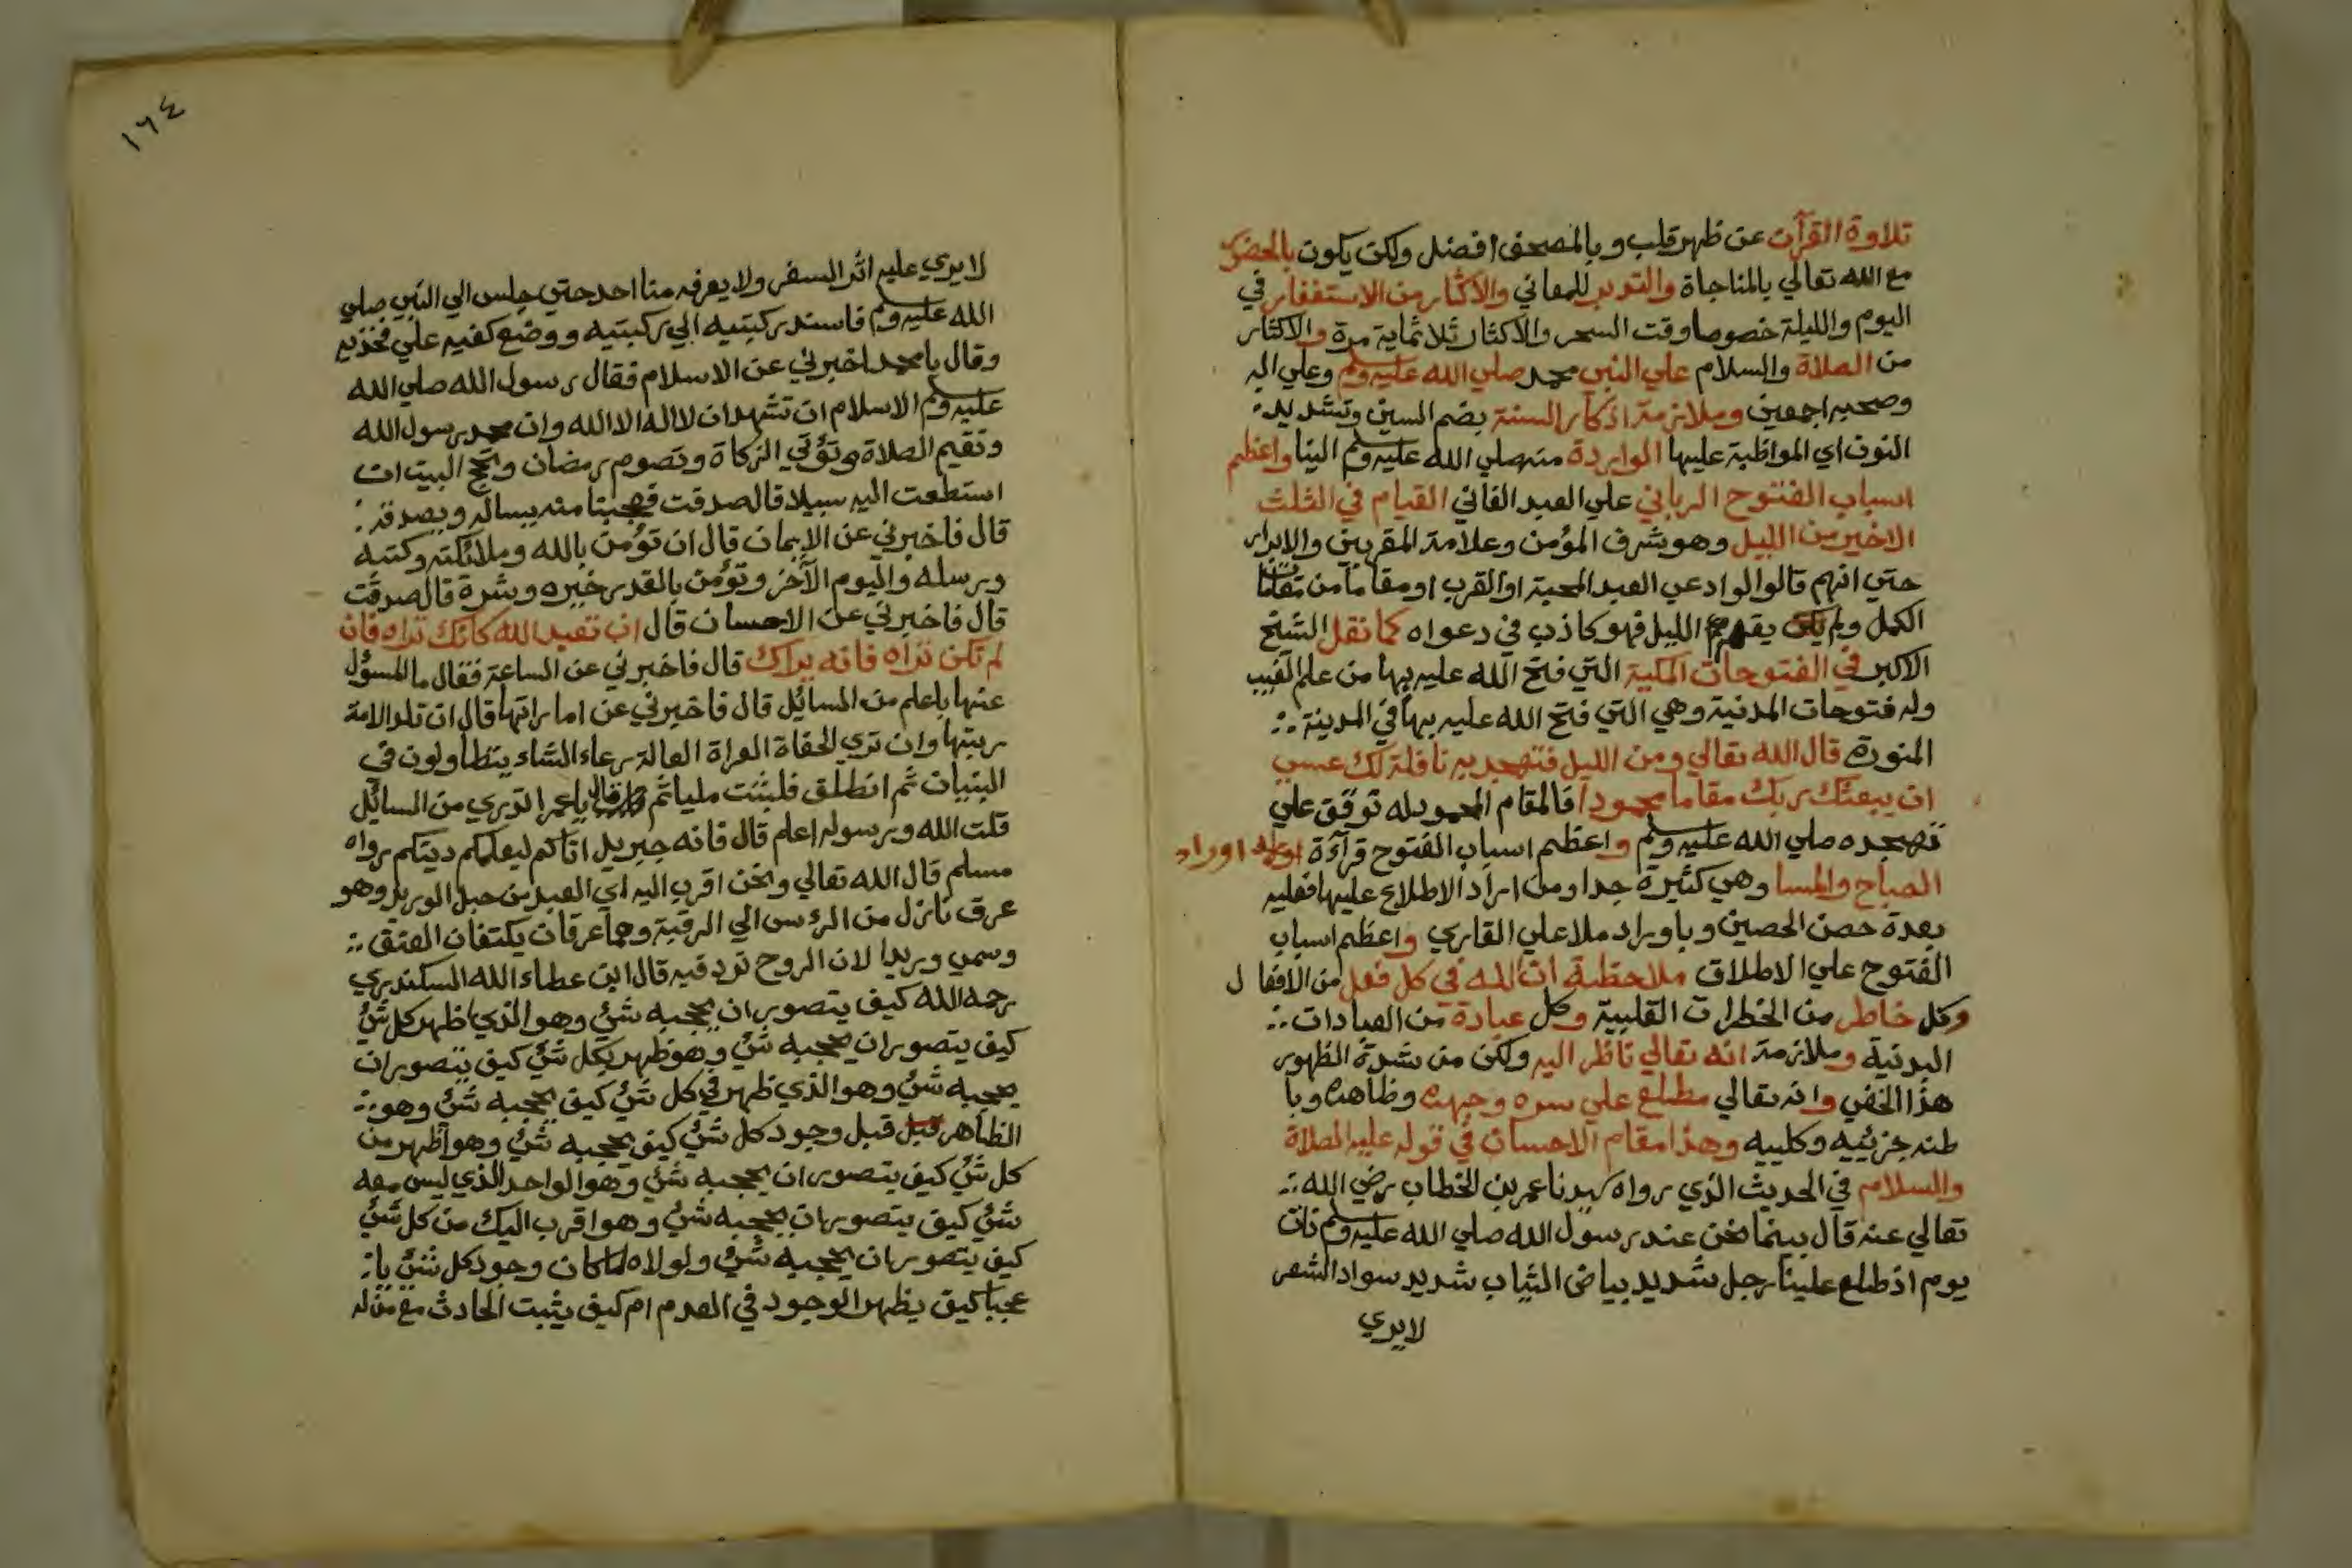 تلاوة القرآن عن ظهر قلب وبالمصحف افضل ولكن يكون بالحضور
مع الله تعالي بالمناجاة والتدبر للمعاني والاكثار من الاستغفار في
اليوم والليلة خصوصا وقت السحر والاكثار ثلاثماية مرة والاكثار
من الصلاة والسلام علي النبي محمد صلي الله عليه وسلم وعلي اله
وصحبه اجمعين وملازمة اذكار السنة بضم السين وتشديد
النون اي المواظبة عليها الواردة منه صلي الله عليه وسلم الينا واعظم
اسباب الفتوح الرباني علي العبد الفاني القيام في الثلث
الاخير من الليل وهو شرف المؤمن وعلامة المقربين والابرار
حتي انهم قالوا لو ادعي العبد المحبة او القرب او مقاما من مقامات
الكمل ولم يقم الليل فهو كاذب في دعواه كما نقل الشيخ
الاكبر في الفتوحات المكية التي فتح الله عليه بها من علم الغيب
وله فتوحات المدنية وهي التي فتح الله عليه بها في المدينة ؞
المنورة قال الله تعالي ومن الليل فتهجد به نافلة لك عسي
ان يبعثك ربك مقاما محمودا فالمقام المحمود له توقف علي
تهجده صلي الله عليه وسلم واعظم اسباب الفتوح قرآءة اوراد
الصباح والمسا وهي كثيرة جدا ومن اراد الاطلاع عليها فعليه
بعدة حصن الحصين وباوراد ملا علي القاري واعظم اسباب
الفتوح علي الاطلاق ملاحظة ان الله في كل فعل من الافعال
وكل خاطر من الخطرات القلبية وكل عبادة من العبادات ؞
البدنية وملازمة انه تعالي ناظر اليه ولكن من شدة الظهور
هذا الخفي وانه تعالي مطلع علي سره وجهره وظاهره وبا
طنه جزئييه وكلييه وهذا مقام الاحسان في قوله عليه الصلاة
والسلام في الحديث الذي رواه سيدنا عمر بن الخطاب رضي الله ؞
تعالي عنه قال بينما نحن عند رسول الله صلي الله عليه وسلم ذات
يوم اذ طلع علينا رجل شديد بياض الثياب شديد سواد الشعر
لا يري
١٦٤
لا يري عليه اثر السفر ولا يعرفه منا احد حتي جلس الي النبي صلي
الله عليه وسلم فاسند ركبتيه الي ركبتيه ووضع كفيه علي فخذيه
وقال يا محمد اخبرني عن الاسلام فقال رسول الله صلي الله
عليه وسلم الاسلام ان تشهد ان لا اله الا الله وان محمد رسول الله
وتقيم الصلاة وتؤتي الزكاة وتصوم رمضان وتحج البيت ان
استطعت اليه سبيلا قال صدقت فعجبنا منه يساله ويصدقه ؞
قال فاخبرني عن الايمان قال ان تؤمن بالله وملائكته وكتبه
ورسله واليوم الآخر وتؤمن بالقدر خيره وشره قال صدقت
قال فاخبرني عن الاحسان قال ان تعبد الله كانك تراه فان
لم تكن تراه فانه يراك قال فاخبرني عن الساعة فقال ما المسؤل
عنها باعلم من المسائل قال فاخبرني عن اماراتها قال ان تلد الامة
ربتها وان تري الحفاة العراة العالة رعاء الشاء يتطاولون في
البنيان ثم انطلق فلبثت مليا ثم قال يا عمر اتدري من السائل
قلت الله ورسوله اعلم قال فانه جبريل اتاكم ليعلمكم دينكم رواه
مسلم قال الله تعالي ونحن اقرب اليه اي العبد من حبل الوريد وهو
عرق نازل من الرءس الي الرقبة وهما عرقان يكتنفان العنق ؞
وسمي وريدا لان الروح ترد فيه قال ابن عطاء الله السكندري
رحمه الله كيف يتصور ان يحجبه شئ وهو الذي اظهر كل شئ
كيف يتصور ان يحجبه شئ وهو ظهر بكل شئ كيف يتصور ان
يحجبه شئ وهو الذي ظهر في كل شئ كيف يحجبه شئ وهو ؞
الظاهر قبل قبل وجود كل شئ كيف يحجبه شئ وهو اظهر من
كل شئ كيف يتصور ان يحجبه شئ وهو الواحد الذي ليس معه
شئ كيف يتصور ان يحجبه شئ وهو اقرب اليك من كل شئ
كيف يتصور ان يحجبه شئ ولولاه لما كان وجود كل شئ يا ؞
عجبا كيف يظهر الوجود في العدم ام كيف يثبت الحادث مع من له